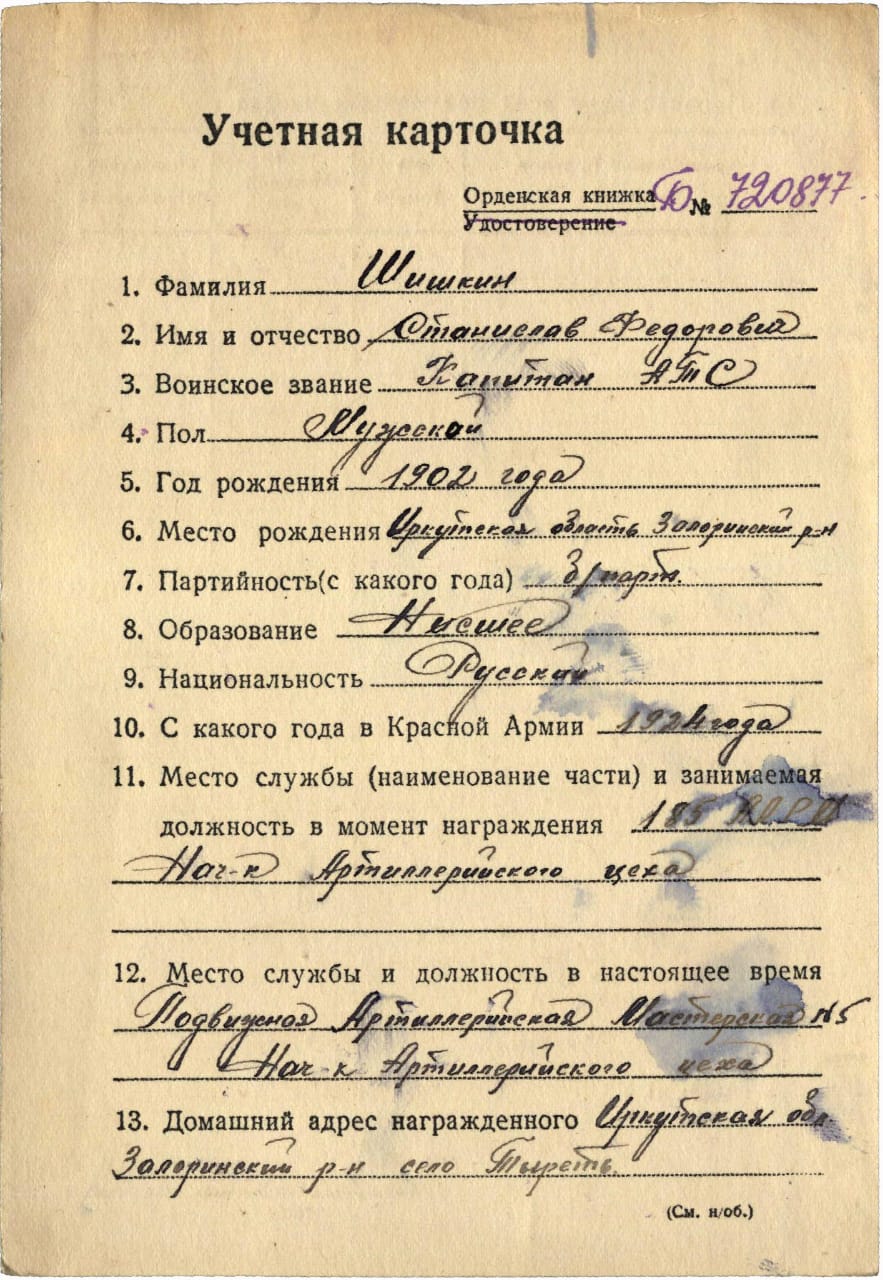 Учетная карточка
Орденская книжка Б № 720877
Удостоверение
1. Фамилия Шишкин
2. Имя и отчество Станислав Федорович
3. Воинское звание Капитан АТС
4. Пол Мужской
5. Год рождения 1902 года
6. Место рождения Иркутская область Заларинский р-н
7. Партийность(с какого года) б/парт.
8. Образование Низшее
9. Национальность Русский
10. С какого года в Красной Армии 1924 года
11. Место службы (наименование части) и занимаемая
должность в момент награждения 185
Нач-к Артиллерийского цеха
12. Место службы и должность в настоящее время
Подвижная Артиллерийская Мастерская №5
Нач-к Артиллерийского цеха
13. Домашний адрес награжденного Иркутская обл.
Заларинский р-н село Тыреть.
(См. н/об.)